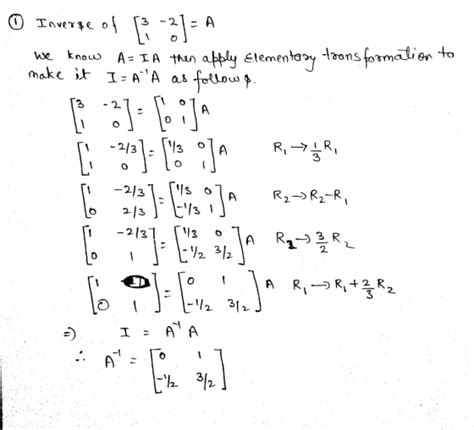 ① Inverse of [3 -2; 1 0] = A
We know A = IA then apply Elementary transformation to
make it I = A⁻¹A as follows.
[3 -2; 1 0] = [1 0; 0 1] A
[1 -2/3; 1 0] = [1/3 0; 0 1] A R₁ → 1/3 R₁
[1 -2/3; 0 2/3] = [1/3 0; -1/3 1] A R₂ → R₂ - R₁
[1 -2/3; 0 1] = [1/3 0; -1/2 3/2] A R₂ → 3/2 R₂
[1 ; 0 1] = [0 1; -1/2 3/2] A R₁ → R₁ + 2/3 R₂
⇒ I = A⁻¹ A
∴ A⁻¹ = [0 1; -1/2 3/2]